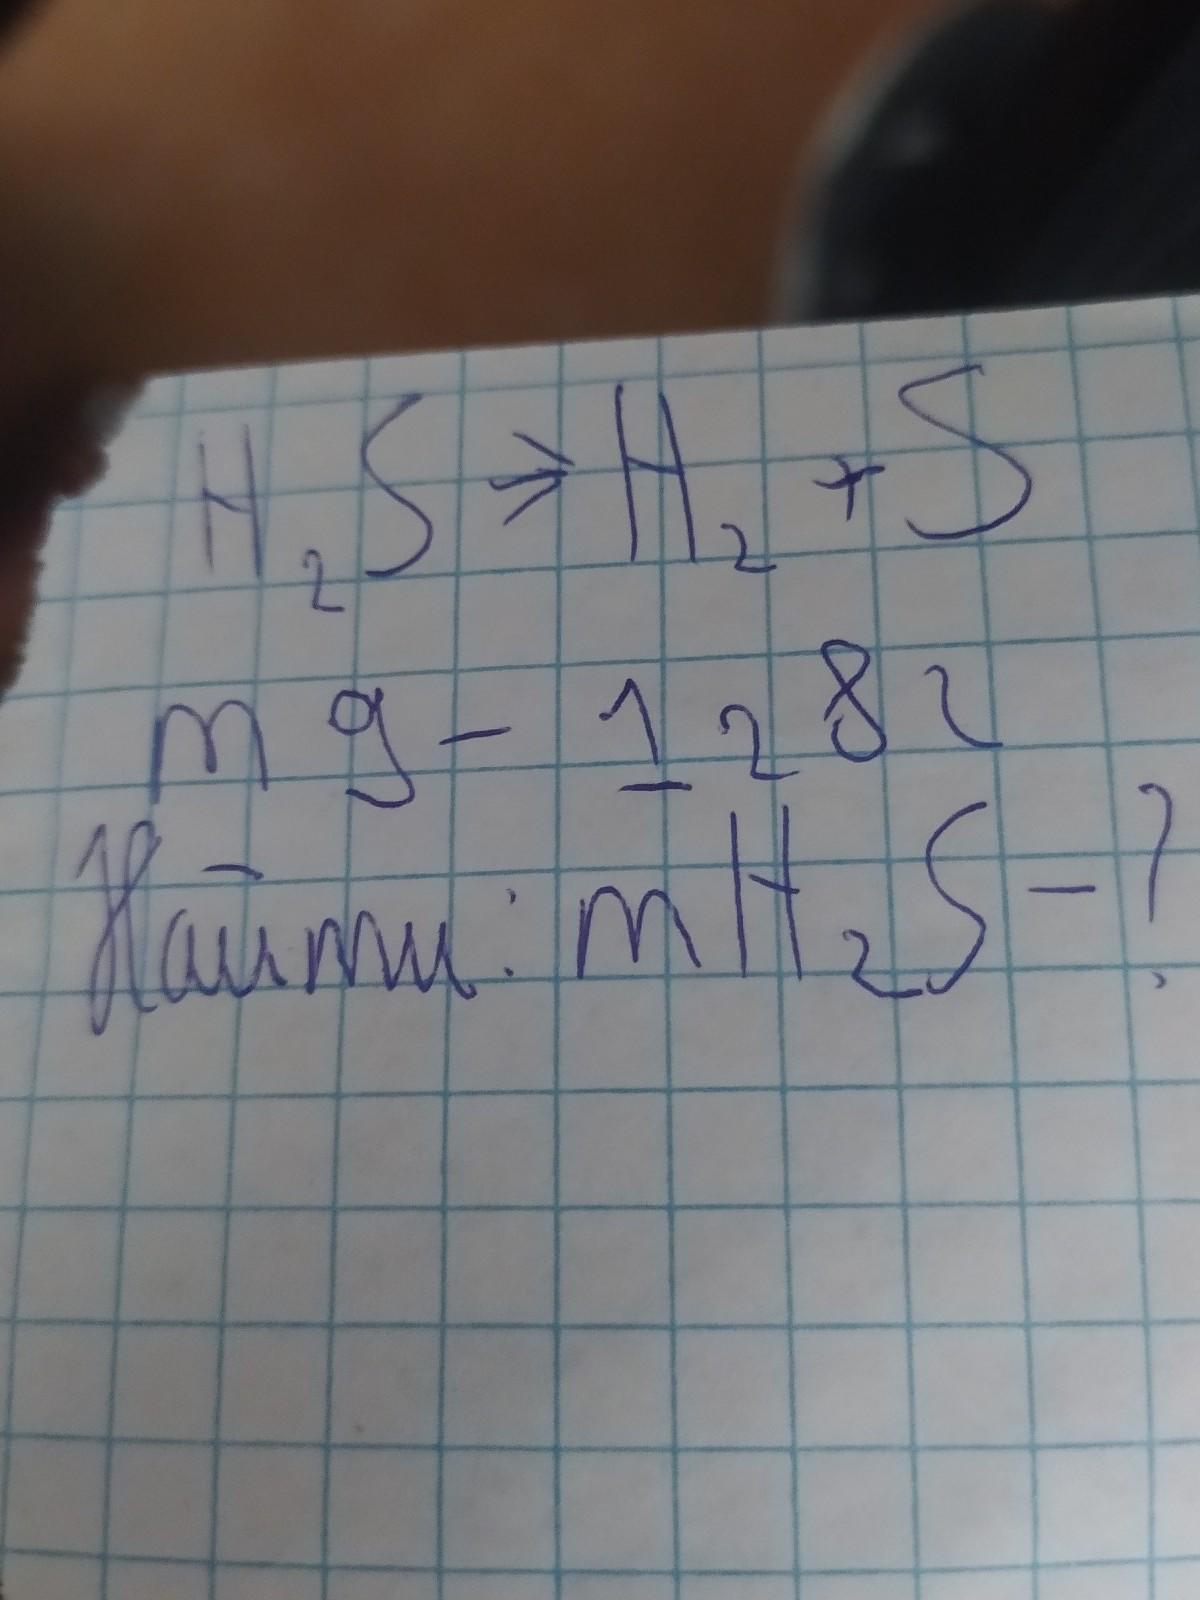 H₂S → H₂ + S
m g - 128г
Найти: mH₂S - ?